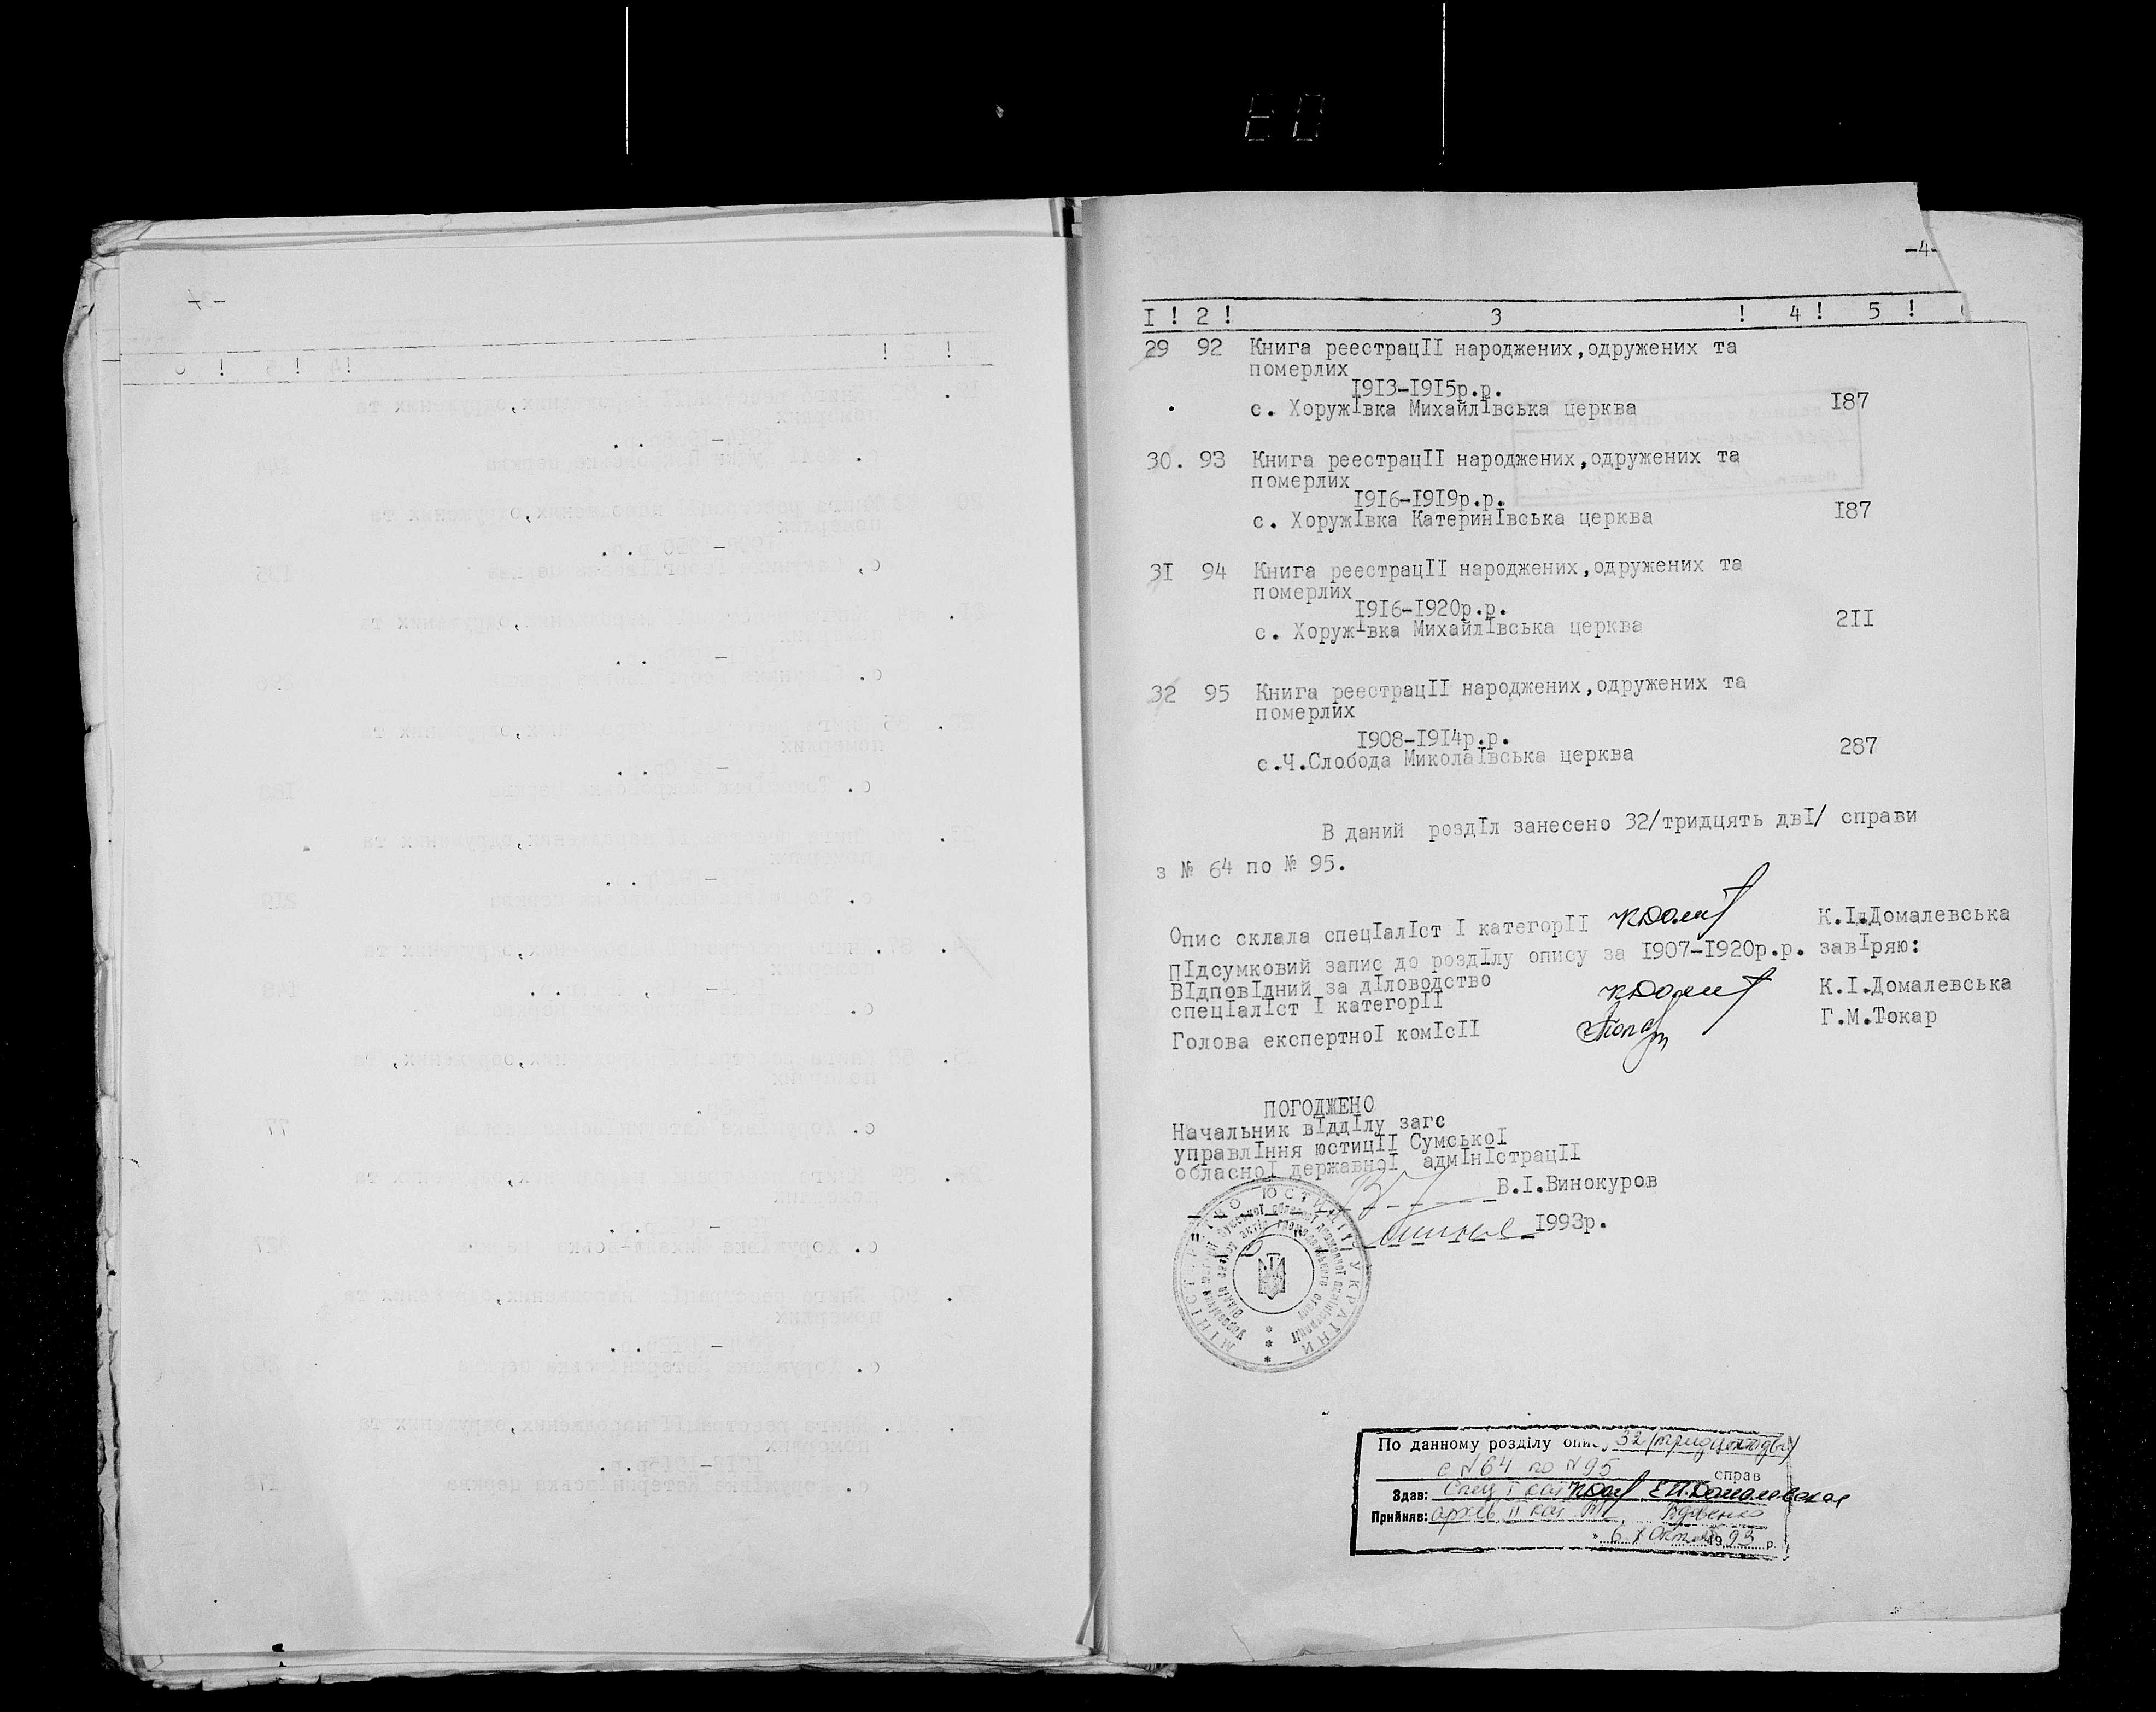 -4-
I ! 2 ! 3 ! 4 ! 5 !
29 92 Книга реестрацII народжених,одружених та
померлих
I9I3-I9I5р.р.
с. ХоружIвка МихайлIвська церква I87
30. 93 Книга реестрацII народжених,одружених та
померлих
I9I6-I9I9р.р.
с. ХоружIвка КатеринIвська церква I87
3I 94 Книга реестрацII народжених,одружених та
померлих
I9I6-I920р.р.
с. ХоружIвка МихайлIвська церква 2II
32 95 Книга реестрацII народжених,одружених та
померлих
I908-I9I4р.р.
с.Ч.Слобода МиколаIвська церква 287
В даний роздIл занесено 32/тридцять двI/ справи
з № 64 по № 95.
Опис склала спецIалIст I категорII К.І.Домалевська
пIдсумковий запис до роздIлу опису за I907-I920р.р. завIряю:
ВIдповIдний за дIловодство
спецIалIст I категорII К.I.Домалевська
Голова експертноI комIсII Г.М.Токар
ПОГОДЖЕНО
Начальник вIддIлу загс
управлIння юстицII СумськоI
обласноI державноI адмIнIстрацII
В.I.Винокуров
I993р.
МІНІСТЕРСТВО ЮСТИЦІЇ УКРАЇНИ
По данному розділу опис 32/тридцять два/
с №64 по №95 справ
Здав: Спец I кат Е.И.Домалевская
Прийняв: архів. II кат
"6" Окт 1993 р.